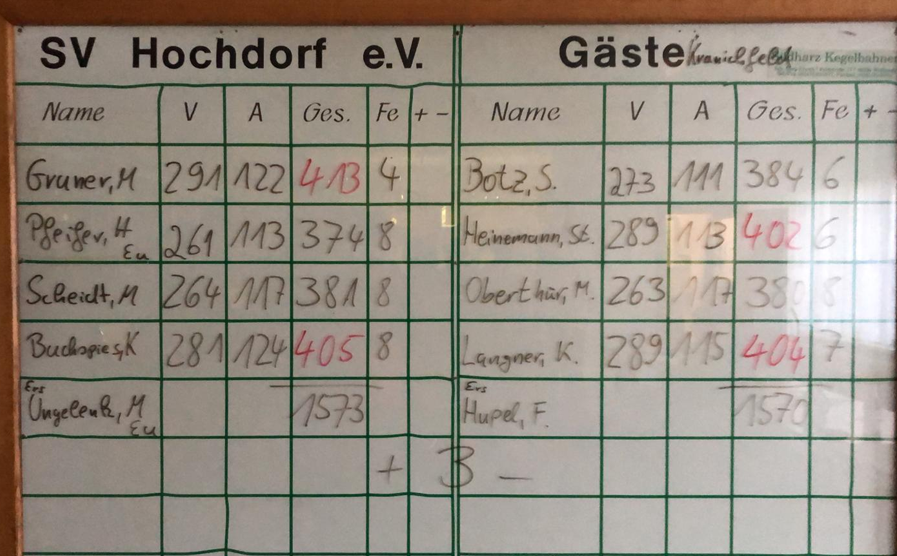 SV Hochdorf e.V. Gäste Kranichfeld
Kegelbahnen
Name V A Ges. Fe + - Name V A Ges. Fe + -
Gruner, M 291 122 413 4 Botz, S. 273 111 384 6
Pfeifer, H 261 113 374 8 Heinemann, St. 289 113 402 6
Eu
Scheidt, M 264 117 381 8 Oberthür, M. 263 117 380 8
Buchspies, K 281 124 405 8 Langner, K. 289 115 404 7
Ers Ers
Ungelenk, M 1573 Hupel, F. 1570
Eu
+ 3 -